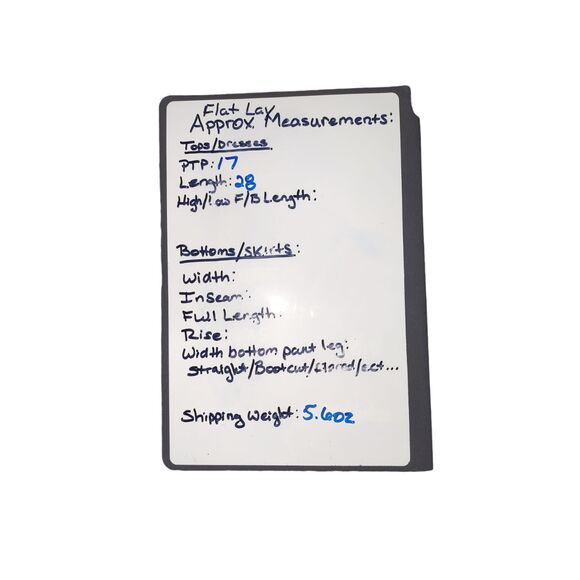 Flat Lay
Approx Measurements:
Tops/Dresses
PTP: 17
Length: 28
High/Low F/B Length:
Bottoms/Skirts:
Width:
Inseam:
Full Length:
Rise:
Width bottom pant leg:
Straight/Bootcut/flared/ect...
Shipping Weight: 5.6oz